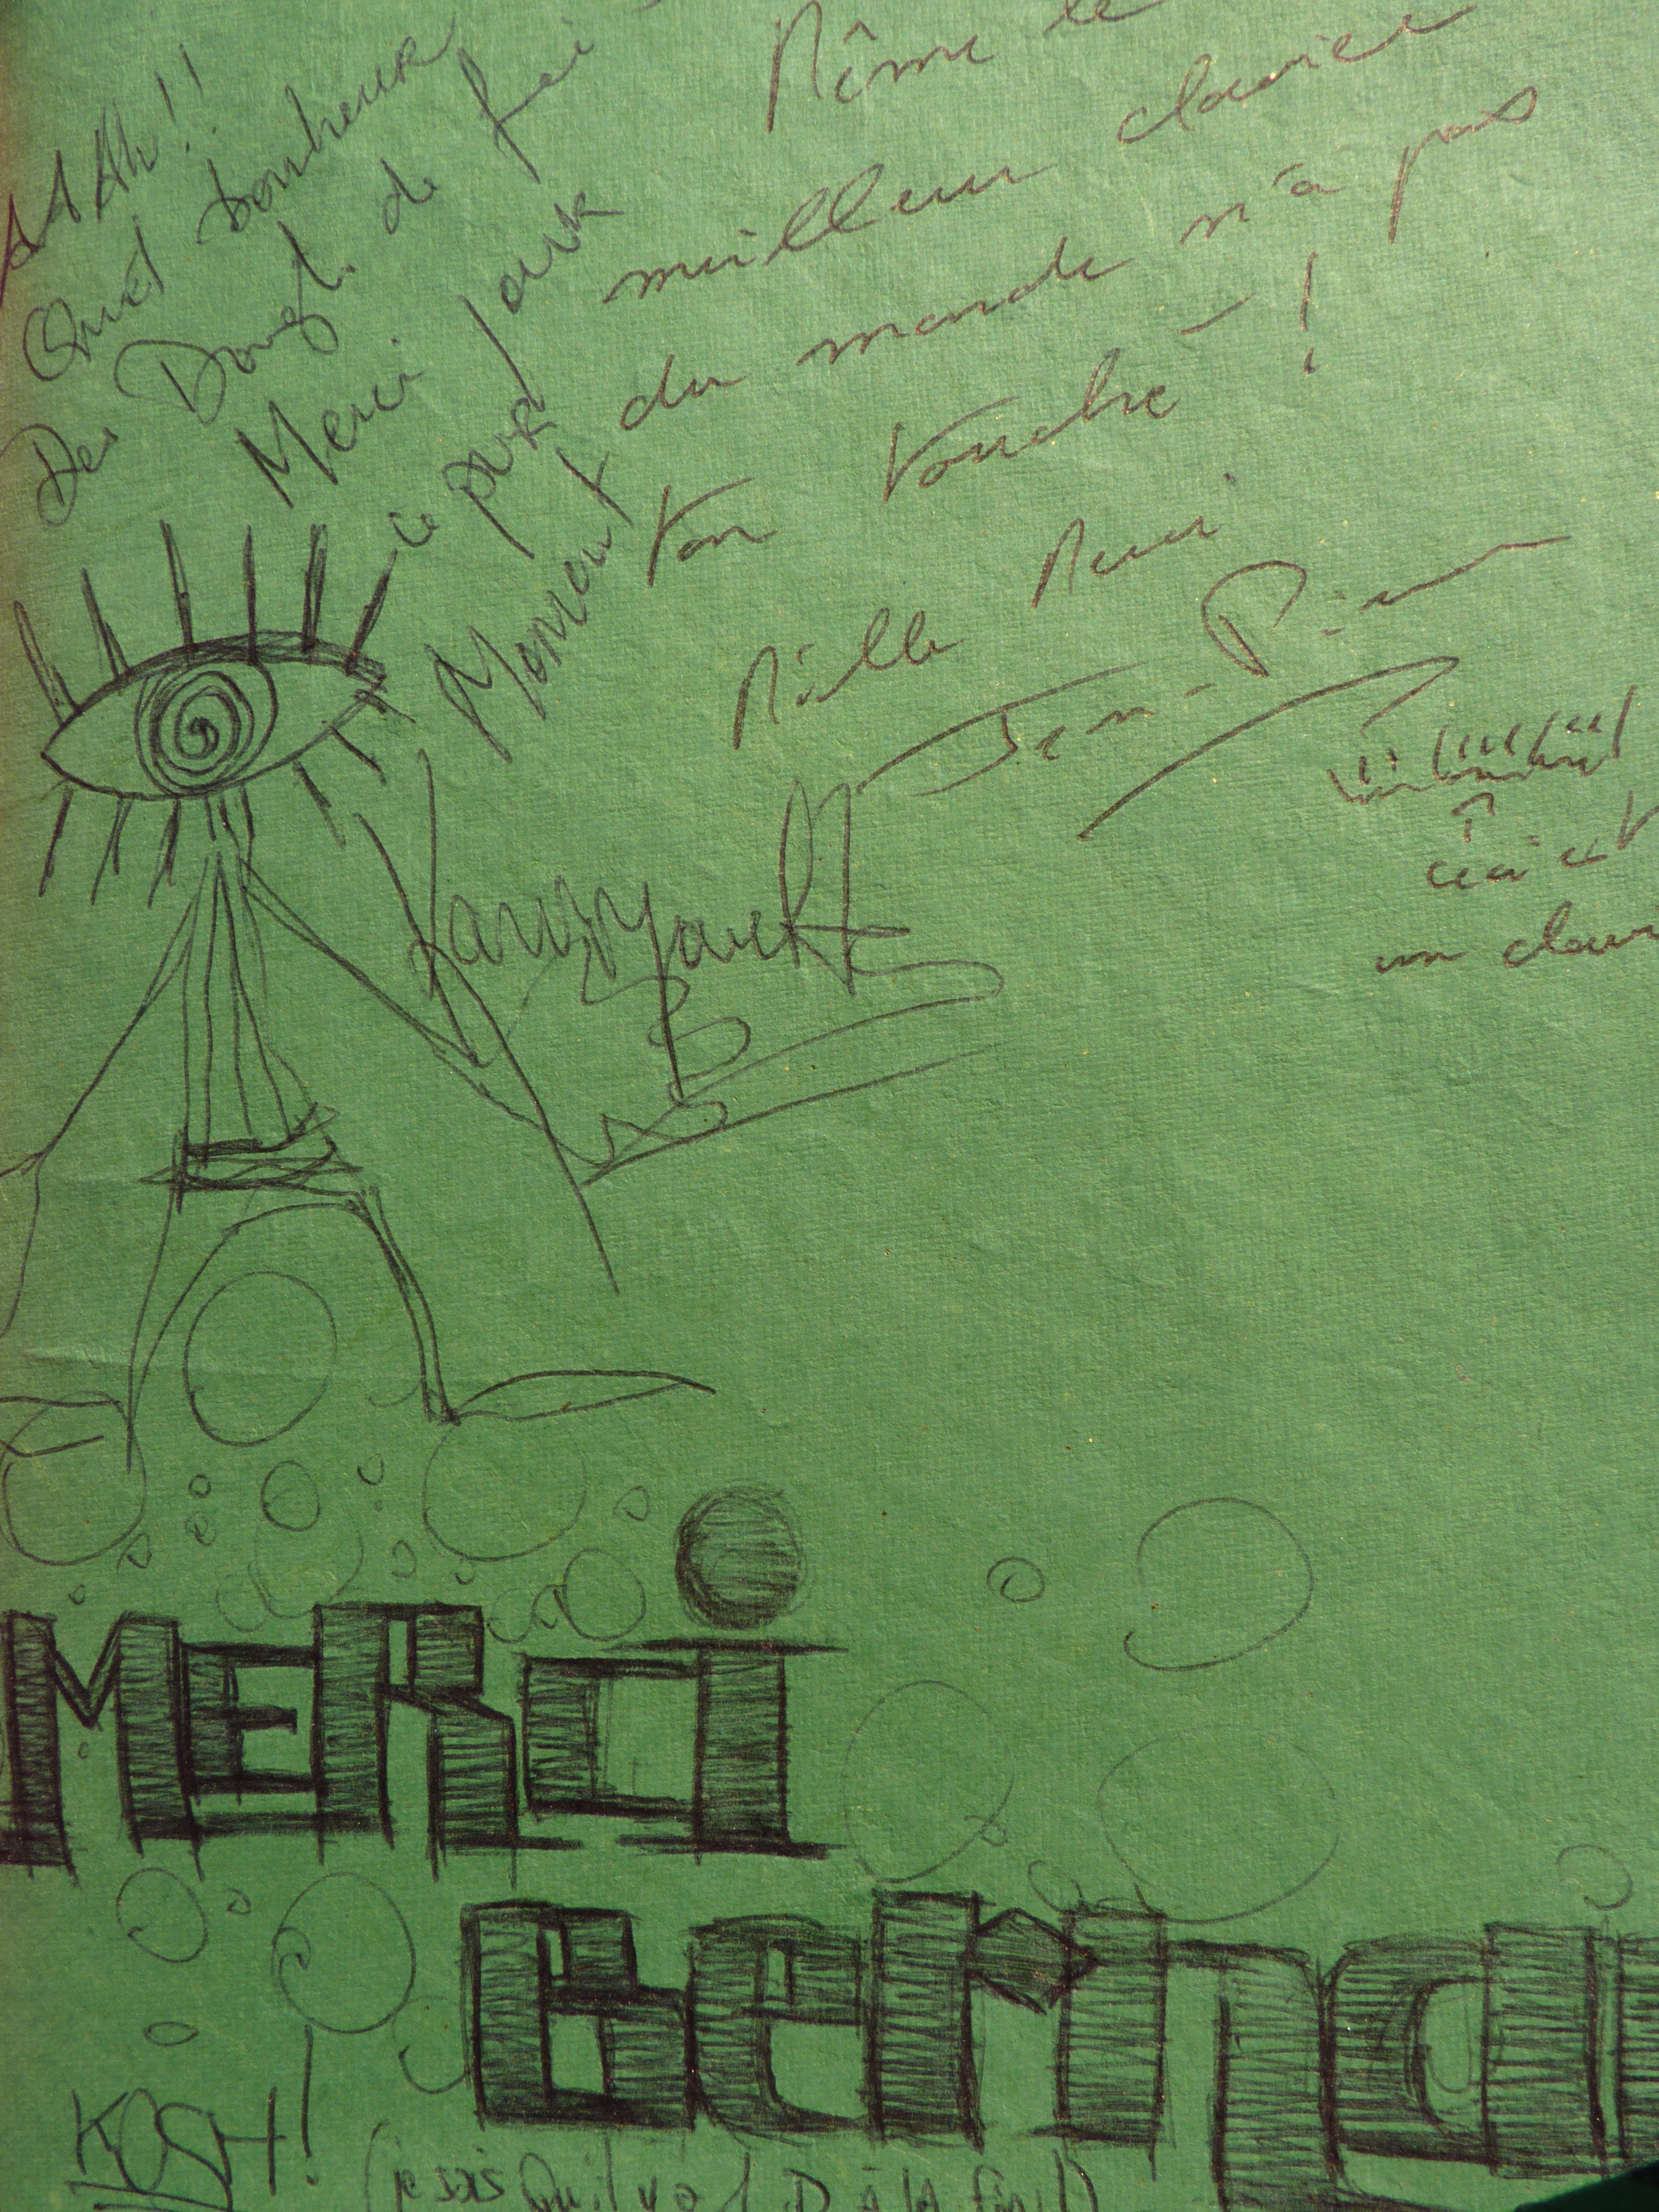 AAAh!!
Quel bonheur
Des Doигts de fée
Merci pour
ce pur
Moment
Même le
meilleur clavier
du monde n'a pas
ton touché !
Mille Merci
Jean-Pierre
↑
ceci est
un clavi
MERci
Bernar
KOSH!
(je sais Qu'il y a 1 D à la fin!)